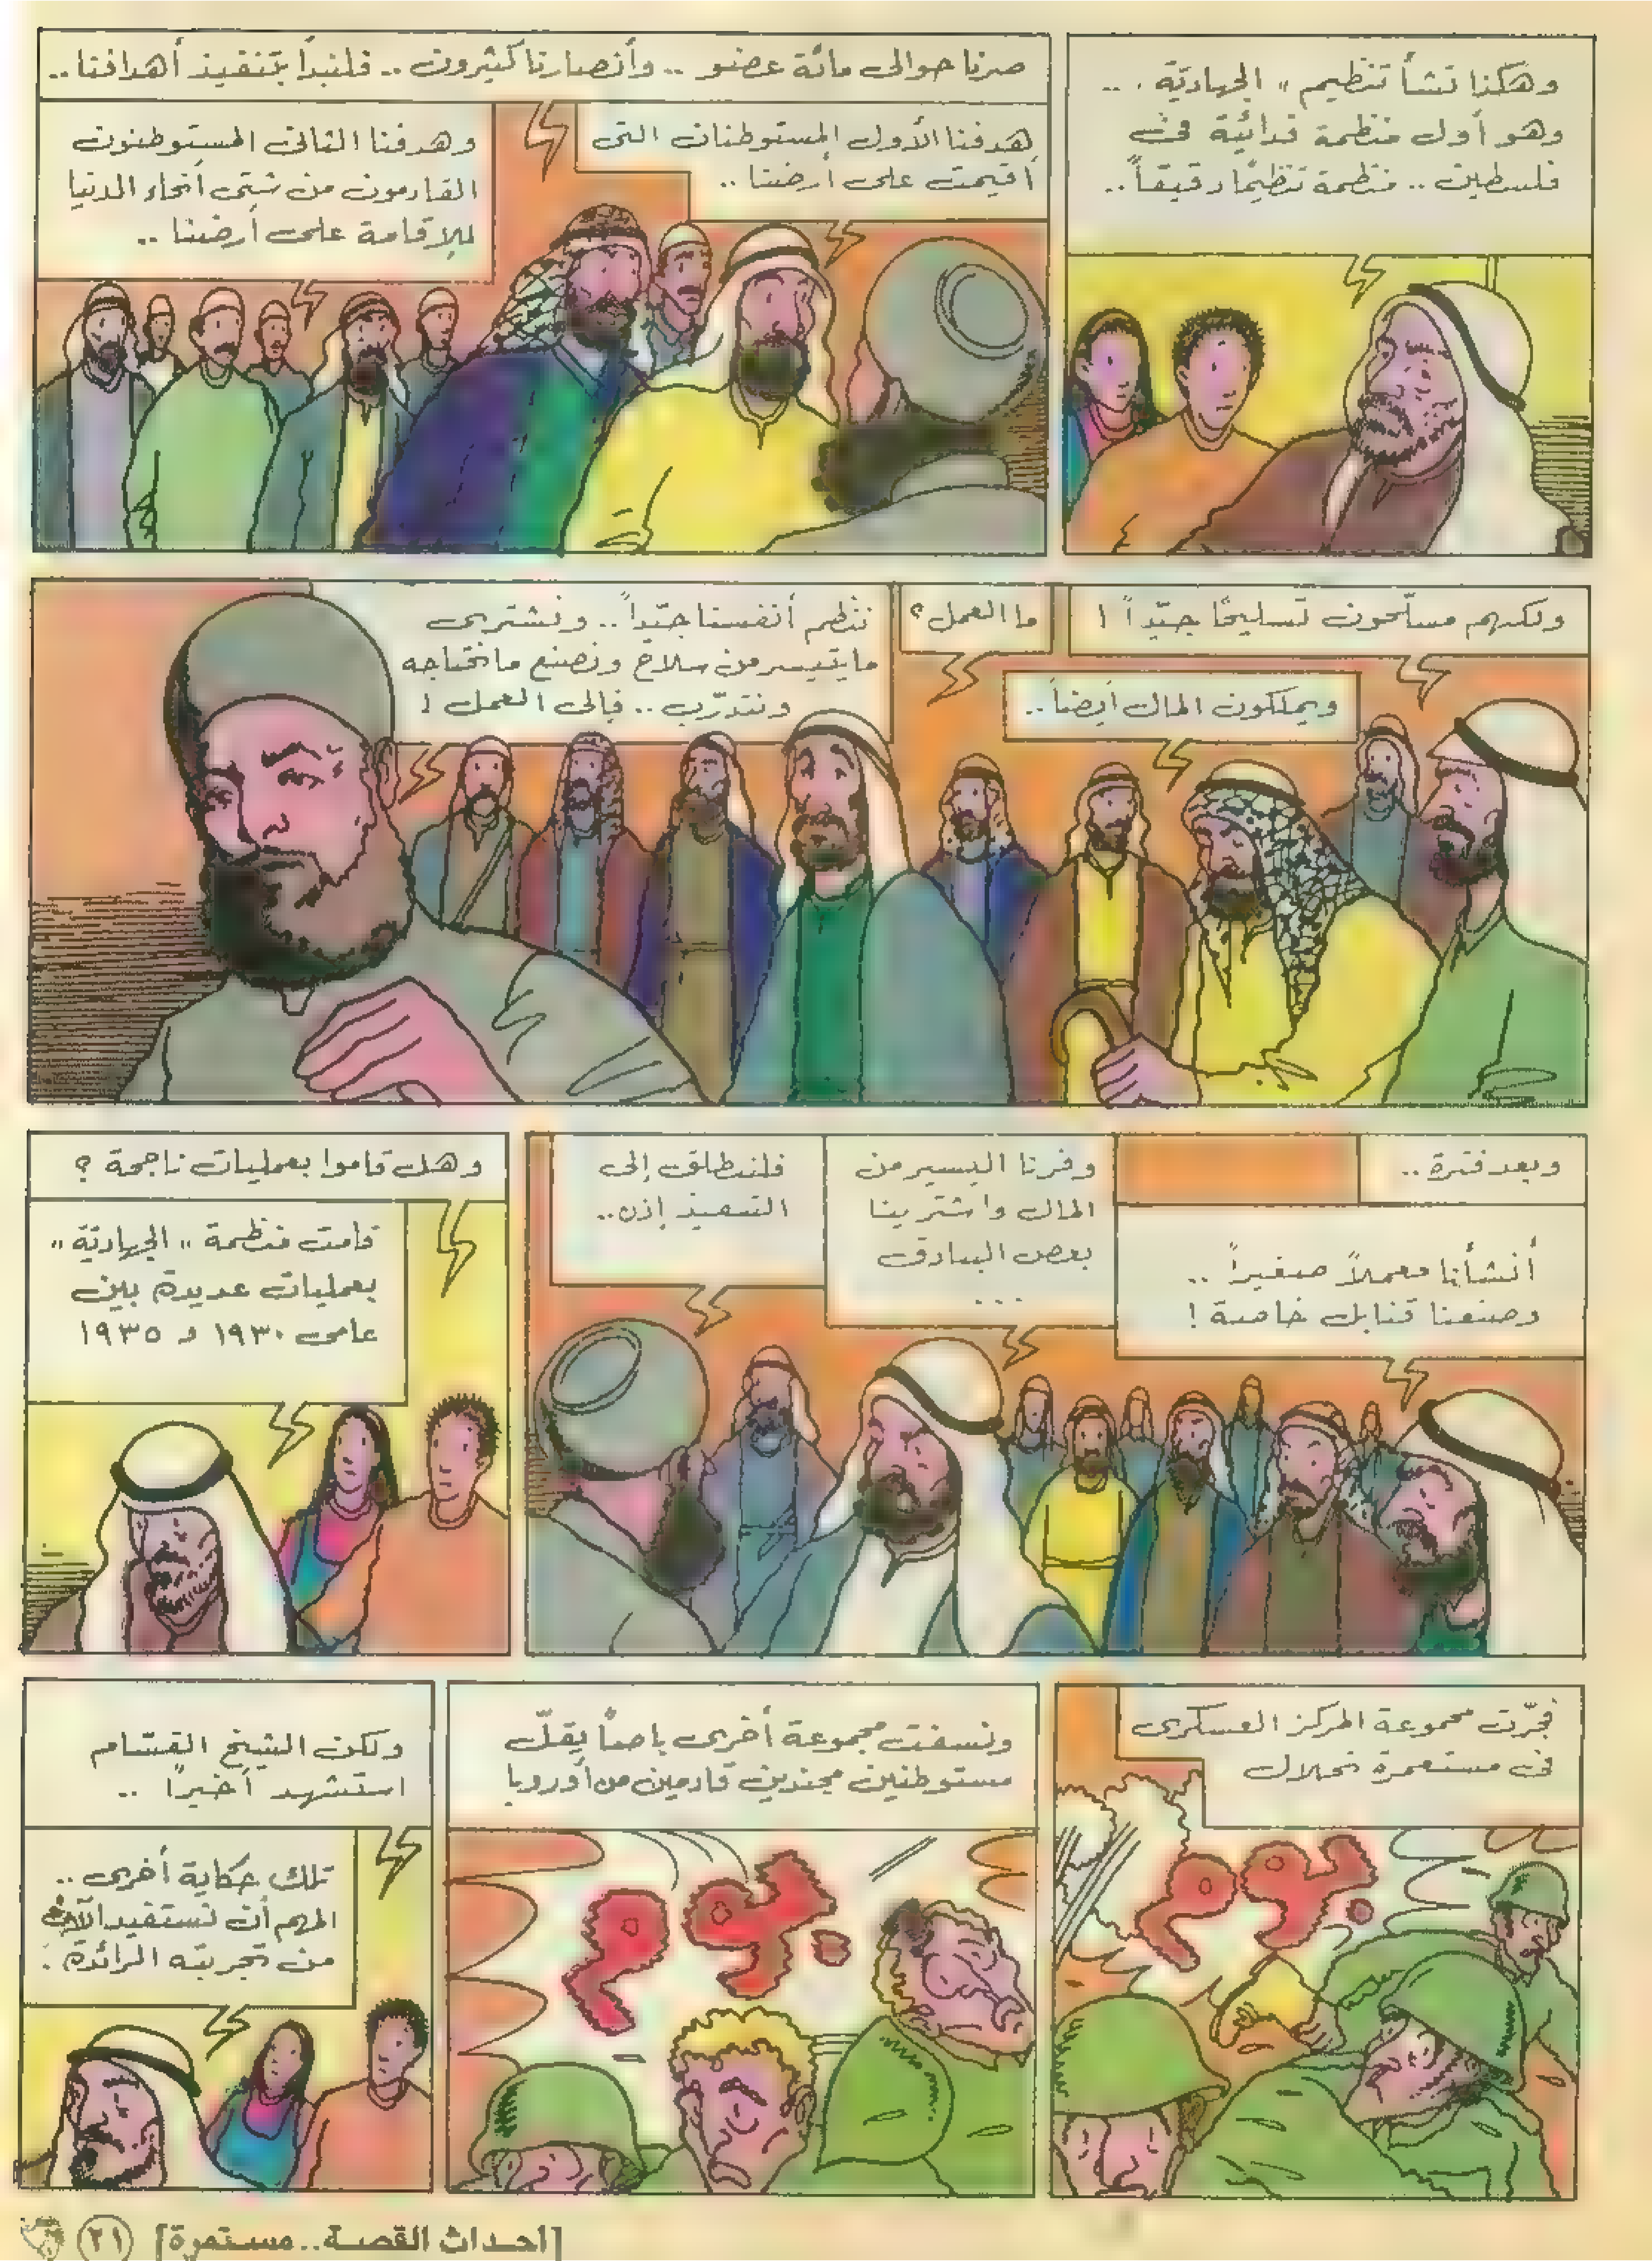 وهكذا نشأ تنظيم " الجهاديّة ..
وهو أول منظمة فدائية في
فلسطين .. منظمة تنظيمًا دقيقاً ..
صرنا حوالى مائة عضو .. وأنصارنا كثيرون .. فلنبدأ بتنفيذ أهدافنا ..
هدفنا الأول المستوطنات التى
أقيمت على أرضنا ..
وهدفنا الثانى المستوطنون
القادمون من شتى أنحاء الدنيا
للإقامة على أرضنا ..
ولكنهم مسلّحون تسليحًا جيّداً !
ويملكون المال أيضاً ..
ما العمل ؟
ننظم أنفسنا جيّداً .. ونشترى
ما يتيسر من سلاح ونصنع ما نحتاجه
ونتدرّب .. فإلى العمل !
وبعد فترة ..
أنشأنا معملاً صغيراً ..
وصنعنا قنابل خاصة !
وفرنا اليسير من
المال واشترينا
بعض البنادق
...
فلننطلق إلى
التنفيذ إذن ..
وهل قاموا بعمليات ناجحة ؟
قامت منظمة " الجهاديّة "
بعمليات عديدة بين
عامى ١٩٣٠ و ١٩٣٥
فجّرت مجموعة المركز العسكرى
فى مستعمرة نحلال
ونسفت مجموعة أخرى باصاً يقلّ
مستوطنين مجندين قادمين من أوروبا
ولكن الشيخ القسّام
استشهد أخيراً ..
تلك حكاية أخرى ..
المهم أن نستفيد الآن
من تجربته الرائدة .
[أحداث القصة .. مستمرة]
٢١